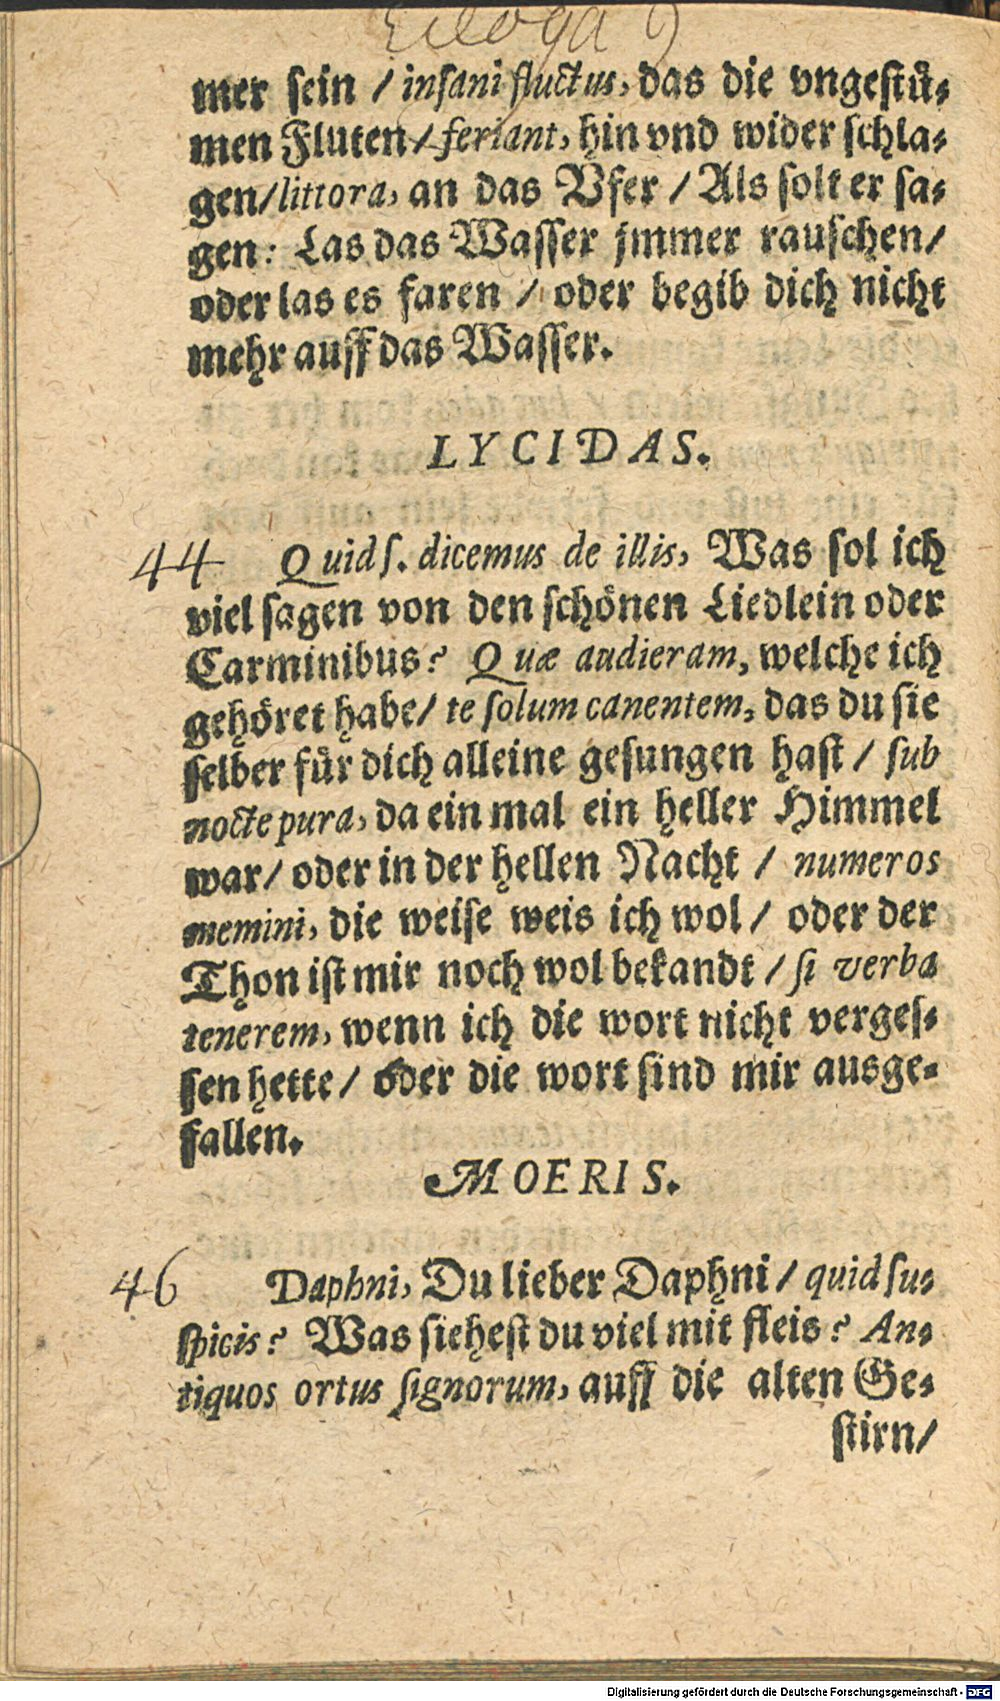 Ecloga 9
mer sein / insani fluctus, das die vngestuͤ-
men Fluten / feriant, hin vnd wider schla-
gen / littora, an das Vfer / Als solt er sa-
gen: Las das Wasser jmmer rauschen /
oder las es faren / oder begib dich nicht
mehr auff das Wasser.
LYCIDAS.
44 Quid s. dicemus de illis, Was sol ich
viel sagen von den schoͤnen Liedlein oder
Carminibus? Quæ audieram, welche ich
gehoͤret habe / te solum canentem, das du sie
selber fuͤr dich alleine gesungen hast / sub
nocte pura, da ein mal ein heller Himmel
war / oder in der hellen Nacht / numeros
memini, die weise weis ich wol / oder der
Thon ist mir noch wol bekandt / si verba
tenerem, wenn ich die wort nicht verges-
sen hette / oder die wort sind mir ausge-
fallen.
MOERIS.
46 Daphni, Du lieber Daphni / quid su-
spicis? Was siehest du viel mit fleis? An-
tiquos ortus signorum, auff die alten Ge-
stirn /
Digitalisierung gefördert durch die Deutsche Forschungsgemeinschaft - DFG